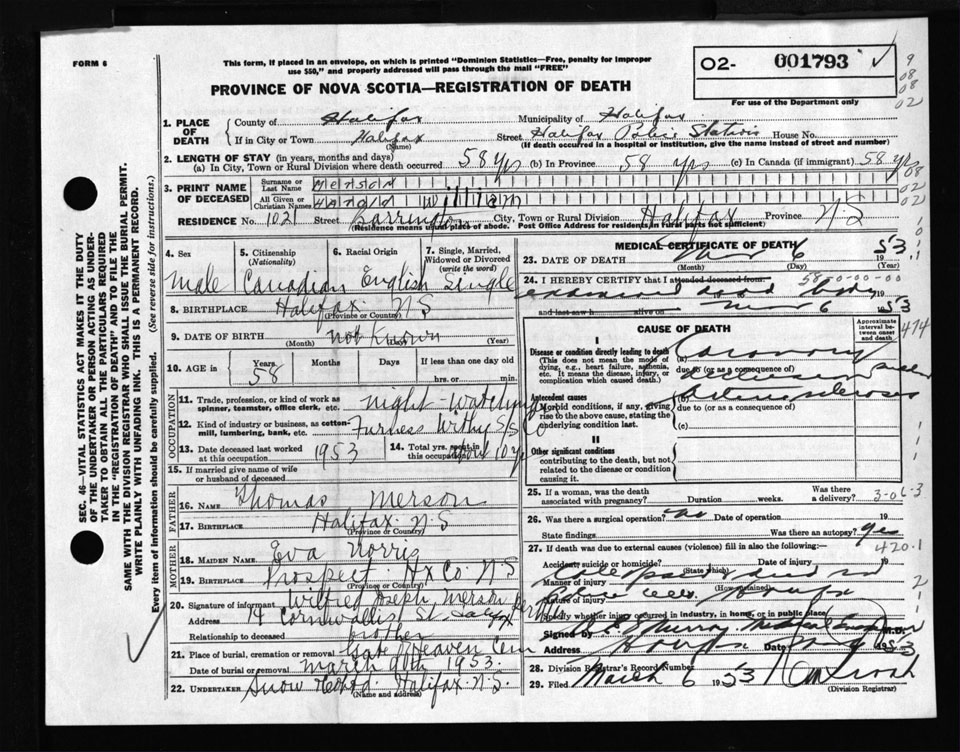 FORM 6
This form, if placed in an envelope, on which is printed "Dominion Statistics—Free, penalty for improper
use $50," and properly addressed will pass through the mail "FREE"
02- 001793
For use of the Department only
9
08
08
02
PROVINCE OF NOVA SCOTIA—REGISTRATION OF DEATH
1. PLACE OF DEATH
County of Halifax Municipality of Halifax
If in City or Town Halifax Street Halifax Police Station House No.
(Name) (If death occurred in a hospital or institution, give the name instead of street and number)
2. LENGTH OF STAY (in years, months and days)
(a) In City, Town or Rural Division where death occurred 58 yrs (b) In Province 58 yrs (c) In Canada (if immigrant) 58 yrs
3. PRINT NAME OF DECEASED
Surname or Last Name Merson
All Given or Christian Names Harold William
RESIDENCE No. 1021 Street Barrington City, Town or Rural Division Halifax Province N.S
(Residence means usual place of abode. Post Office Address for residents in rural parts not sufficient)
4. Sex Male
5. Citizenship (Nationality) Canadian
6. Racial Origin English
7. Single, Married, Widowed or Divorced (write the word) Single
8. BIRTHPLACE Halifax N.S
(Province or Country)
9. DATE OF BIRTH not known
(Month) (Day) (Year)
10. AGE Years 58 Months Days If less than one day old
hrs. or min.
OCCUPATION
11. Trade, profession, or kind of work as spinner, teamster, office clerk, etc. night-watching
12. Kind of industry or business, as cotton-mill, lumbering, bank, etc. Furness Withy S/S Co
13. Date deceased last worked at this occupation 1953
14. Total yrs. spent in this occupation 10 yrs
15. If married give name of wife or husband of deceased
FATHER
16. NAME Thomas Merson
17. BIRTHPLACE Halifax N.S
(Province or Country)
MOTHER
18. MAIDEN NAME Eva Norris
19. BIRTHPLACE Prospect Hx Co. N.S
(Province or Country)
20. Signature of informant Wilfred Joseph Merson
Address 14 Cornwallis St. Halifax
Relationship to deceased brother
21. Place of burial, cremation or removal Gate of Heaven Cem
Date of burial or removal March 9th 1953.
22. UNDERTAKER Snow & Co Ltd. Halifax N.S.
(Name and address)
MEDICAL CERTIFICATE OF DEATH
23. DATE OF DEATH Mar 6 1953
(Month) (Day) (Year)
24. I HEREBY CERTIFY that I attended deceased from
58-0-00-00
examined dead body 19
and last saw h alive on Mar 6 1953
CAUSE OF DEATH
Approximate interval between onset and death
474
I
Disease or condition directly leading to death
(This does not mean the mode of dying, e.g., heart failure, asthenia, etc. It means the disease, injury, or complication which caused death.)
(a) Coronary
due to (or as a consequence of)
Antecedent causes
Morbid conditions, if any, giving rise to the above cause, stating the underlying condition last.
(b) Arteriosclerosis
due to (or as a consequence of)
(c)
II
Other significant conditions
contributing to the death, but not related to the disease or condition causing it.
25. If a woman, was the death associated with pregnancy? Duration weeks. Was there a delivery?
3-06-3
26. Was there a surgical operation? no Date of operation 19
State findings Was there an autopsy? yes
420.1
27. If death was due to external causes (violence) fill in also the following:—
Accident, suicide or homicide? Date of injury 19
(State which)
Manner of injury
(How sustained)
Nature of injury
Specify whether injury occurred in industry, in home, or in public place
Signed by Murray Medical Examiner M.D.
Address Halifax Date 1953
28. Division Registrar's Record Number
29. Filed March 6 1953
(Division Registrar)
SEC. 46—VITAL STATISTICS ACT MAKES IT THE DUTY
OF THE UNDERTAKER OR PERSON ACTING AS UNDER-
TAKER TO OBTAIN ALL THE PARTICULARS REQUIRED
IN THE "REGISTRATION OF DEATH" AND TO FILE THE
SAME WITH THE DIVISION REGISTRAR WHO SHALL ISSUE THE BURIAL PERMIT.
WRITE PLAINLY WITH UNFADING INK. THIS IS A PERMANENT RECORD.
Every item of information should be carefully supplied. (See reverse side for instructions.)